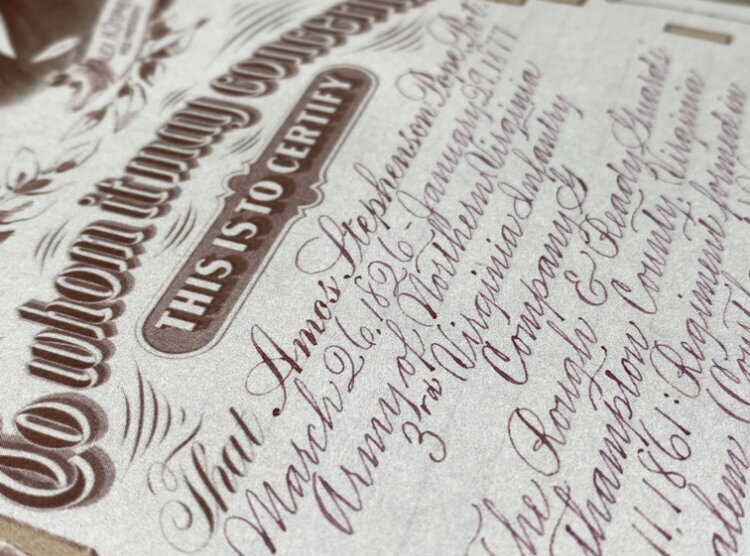 To whom it may concern
THIS IS TO CERTIFY
That Amos Stephenson Pope
March 26, 1826 - January 29, 1877
Army of Northern Virginia
3rd Virginia Infantry
Company G
The Rough & Ready Guards
County, Virginia
11, 1861: Regiment